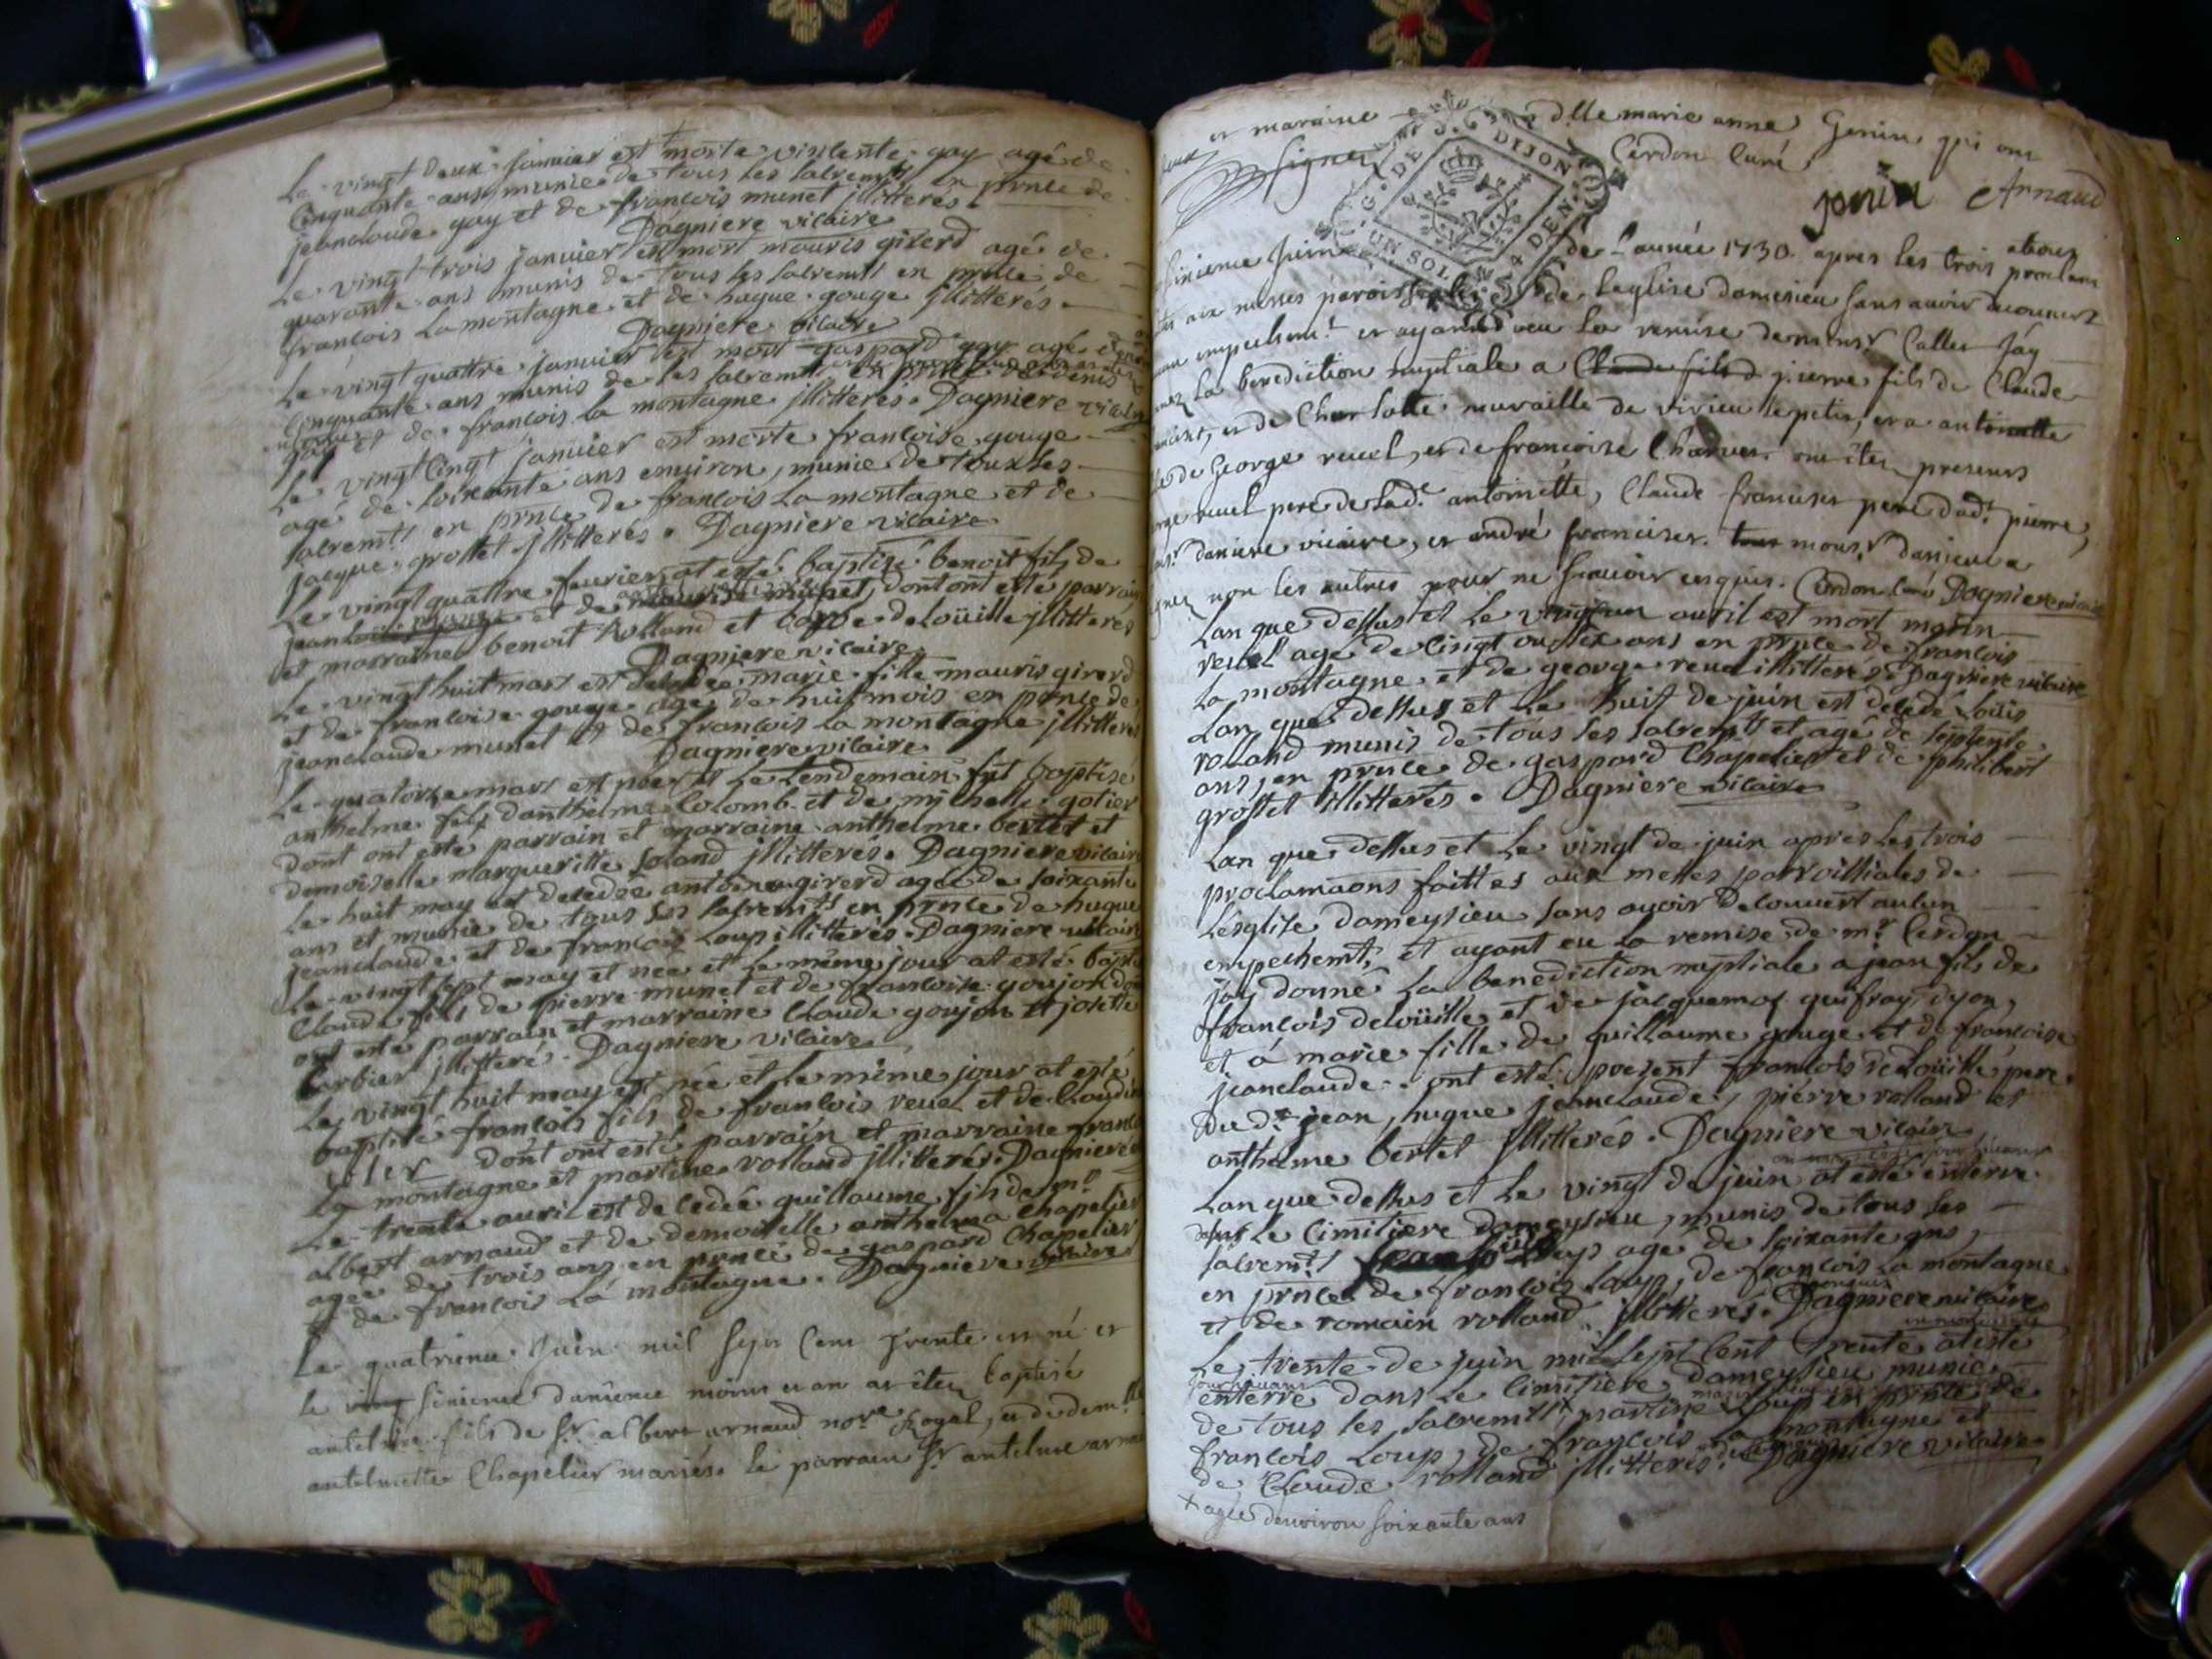 Le vingt deux janvier est morte vinlente gay agé de
Cinquante ans munie de tous les sacremts en prnce de
jeanclaude gay et de francois munet jllitterés
Dagniere vicaire
Le vingt trois janvier est mort mauris girerd agé de
quarante ans munis de tous les sacremts en prnce de
francois La montagne et de hugue gouge jllitterés
Dagniere vicaire
Le vingt quattre janvier est mort gaspard gay agé de
Cinquante ans munis de ses sacremts en prnce de denis
et de francois la montagne jllitteres. Dagniere vicaire
Le vingt cinqt janvier est morte francoise gouge
agé de soixante ans environ, munie de tous les
sacremts en prnce de francois La montagne et de
jacque grostet jllitterés. Dagniere vicaire
Le vingt quattre feurier at esté baptisé benoit fils de
et de munet, dont ont esté parrain
et marraine benoit Rolland et barbe deloüille jllitterés
Dagniere vicaire
Le vingt huit mars est decedee marie fille mauris girerd
et de francoise gouge agé de huit mois en prnce de
jeanclaude munet et de francois la montagne jllitterés
Dagniere vicaire
Le quatorze mars est né et Le Lendemain fut baptisé
anthelme fils danthelme Colomb et de michelle gotier
dont ont esté parrain et marraine anthelme bertet et
demoiselle margueritte Roland jllitteres. Dagniere vicaire
Le huit may est decedee antoine girerd agée de soixante
ans et munie de tous ses sacremts en prnce de hugue
jeanclaude et de francois Loup illitterés. Dagniere vicaire
Le vingt sept may est nee et Le même jour at esté bapt
Claude fils de pierre munet et de francoise goujon do
ont esté parrain et marraine Claude goujon et josette
barbier jllitterés. Dagniere vicaire
Le vingt huit may est née et le même jour at esté
baptisé francois fils de francois revel et de Claudi
dont ont esté parrain et marraine franco
La montagne et martine rolland jllitterés. Dagniere
Le trente auril est decedée guillaume fils de mr
albert arnaud et de demoiselle anthelma Chapelier
agee de trois ans en prnce de gaspard Chapelier
et de francois La montagne. Dagniere vicaire
Le quatrieme Juin mil sept Cent trente est né et
le sixieme dumême mois et an at étez baptisé
antelme fils de Sr. albert arnaud nore Royal, et de demlle
antelmette Chapelier mariés. le parrain Sr antelme arna
et maraine dlle marie anne Genin qui ont
signez Cerdon Curé
G. DE DIJON
UN SOL 4 DEN.
janin Arnaud
sixieme Juin de L'année 1730. apres les trois proclam
ations
aux messes paroissi de L'eglise damesieu sans auoir decouuert
aucun empechemt. et ayant veu La remise de monsr Callet Jáy
La benediction nuptiale a Claude fils d pierre fils de Claude
et de Charlotte muraille de virieu le petit, et a antoinette
de George revel, et de francoise Charvet. ont étez presents
revel pere de Lade. antoinette, Claude francises pere dudt. pierre,
daniere vicaire, et andré francises. tous monsr danieve a
non les autres pour ne scauoir enquis. Cerdon Curé Dagniere vicaire
Lan que dessus et Le vingt un auril est mort martin
revel agé de cinqt ou six ans en prnce de francois
La montagne et de george revel illitterés. Dagniere vicaire
Lan que dessus et Le huit de juin est decedé Loüis
rolland munis de tous ses sacremts et agé de septente
ans, en prnce de gaspard Chapelier et de philibert
grostet illitterés. Dagniere vicaire
Lan que dessus et Le vingt de juin apres les trois
proclamaons faittes aux messes parroissiales de
Lesglise dameysieu sans avoir decouvert aucun
empechemt, et ayant eu La remise de mr. Cerdon
jay donné La benediction nuptiale a jean fils de
francois deloüille et de jacquemaz guifray dyon,
et á marie fille de guillaume gouge et de francoise
jeanclaude. ont esté present francois deloüille pere
du dt. jean, hugue jeanclaude, pierre rolland et
anthelme bertet jllitterés. Dagniere vicaire
Lan que dessus et Le vingt de juin at esté enterré
dans Le Cimitiere dameysieu, munis de tous ses
sacremts agé de soixante ans,
en prnce de francois Loup, de francois La montagne
et de romain rolland illitterés. Dagniere vicaire
Le trente de juin mil sept Cent trente at esté
enterré dans Le Cimitiere dameysieu munie
de tous les sacremts + martine Loup en prnce de
francois Loup, de francois La montagne et
de Claude rolland jllitterés. Dagniere vicaire
+ agée denviron soixante ans